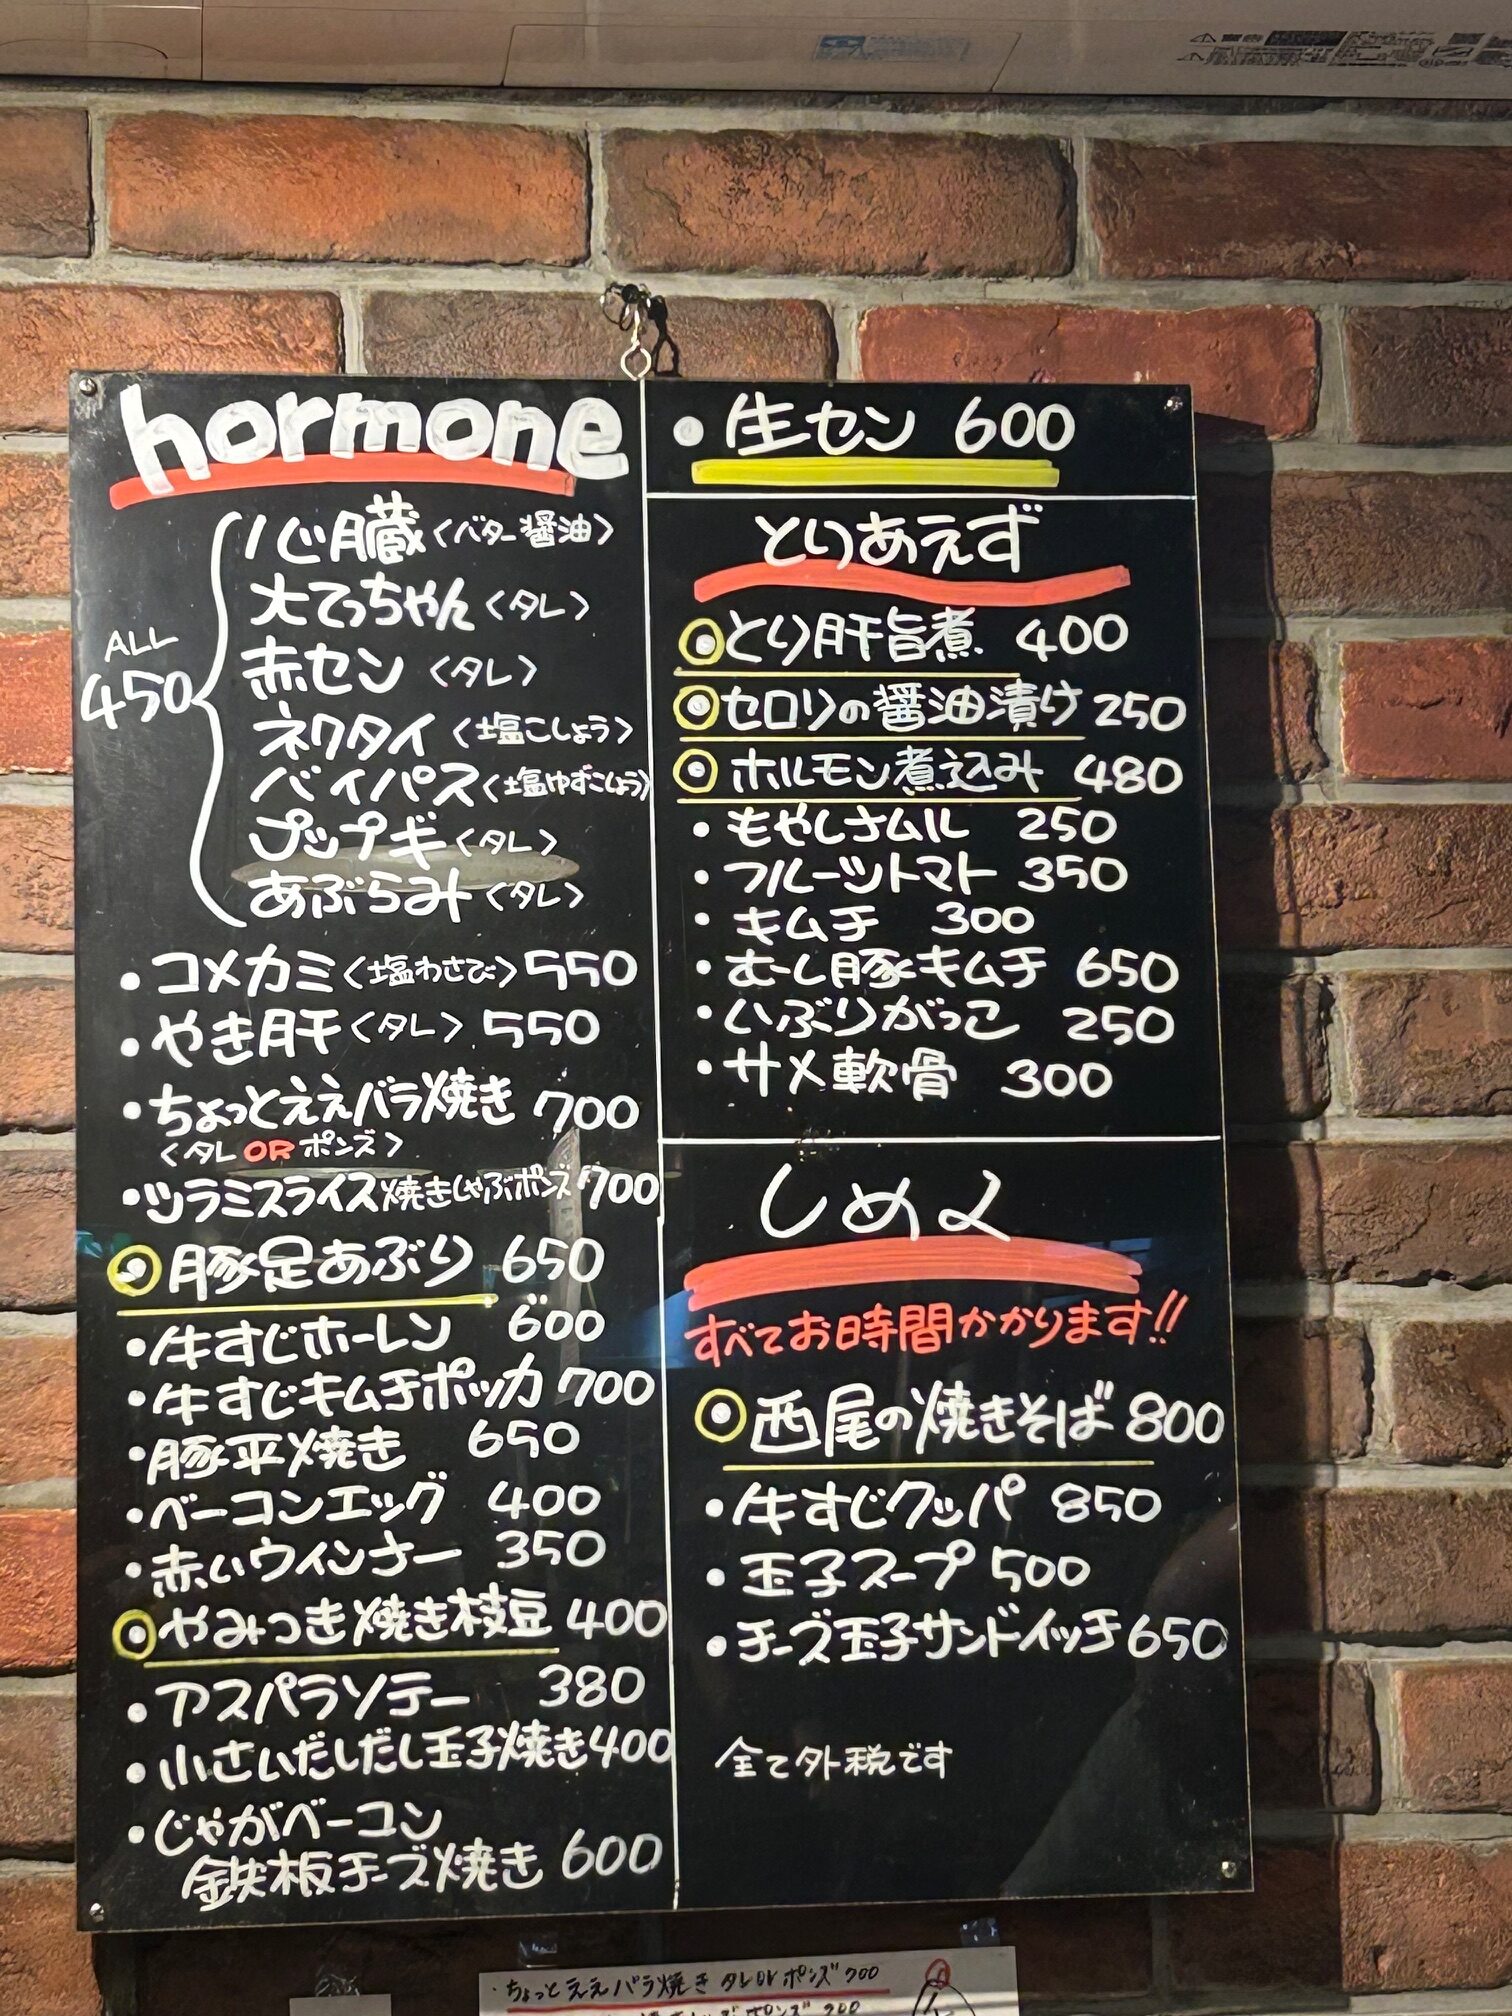 hormone
ALL
450
心臓〈バター醤油〉
大てっちゃん〈タレ〉
赤セン〈タレ〉
ネクタイ〈塩こしょう〉
バイパス〈塩ゆずこしょう〉
プップギ〈タレ〉
あぶらみ〈タレ〉
・コメカミ〈塩わさび〉550
・やき肝〈タレ〉550
・ちょっとええバラ焼き 700
〈タレ OR ポンズ〉
・ツラミスライス焼きしゃぶポンズ 700
◎豚足あぶり 650
・牛すじホーレン 600
・牛すじキムチポッカ 700
・豚平焼き 650
・ベーコンエッグ 400
・赤いウィンナー 350
◎やみつき焼き枝豆 400
・アスパラソテー 380
・小さいだしだし玉子焼き 400
・じゃがベーコン
鉄板チーズ焼き 600
・生セン 600
とりあえず
◎とり肝旨煮 400
◎セロリの醤油漬け 250
◎ホルモン煮込み 480
・もやしナムル 250
・フルーツトマト 350
・キムチ 300
・むし豚キムチ 650
・いぶりがっこ 250
・サメ軟骨 300
しめく
すべてお時間かかります!!
◎西尾の焼きそば 800
・牛すじクッパ 850
・玉子スープ 500
・チーズ玉子サンドイッチ 650
全て外税です
・ちょっとええバラ焼き タレorポンズ 700